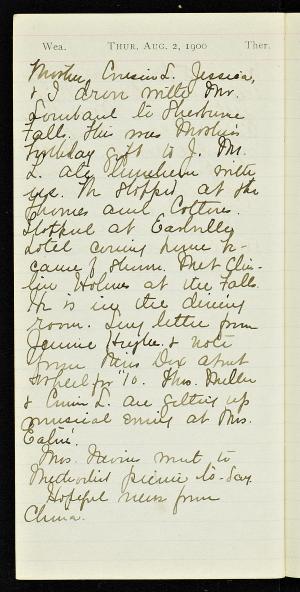 Wea. THUR. AUG. 2, 1900 Ther.
Mother, Cousin L. Jessica,
& I drove with Mr.
Lombard to Sherburne
Fall. This was Mother's
birthday gift to J. Mr.
L. ate luncheon with
us. We stopped at the
and
Stopped at Earlville
hotel coming home be-
cause of storm. Met
Holmes at the Falls.
He is in the dining
room. Long letter from
Jennie & note
from Miss Dix about
for '10. Mrs. Miller
& Cousin L. are getting up
musical evening at Mrs.
Eaton'
Mrs. Nevin went to
Methodist picnic to-day
Hopeful news from
China.